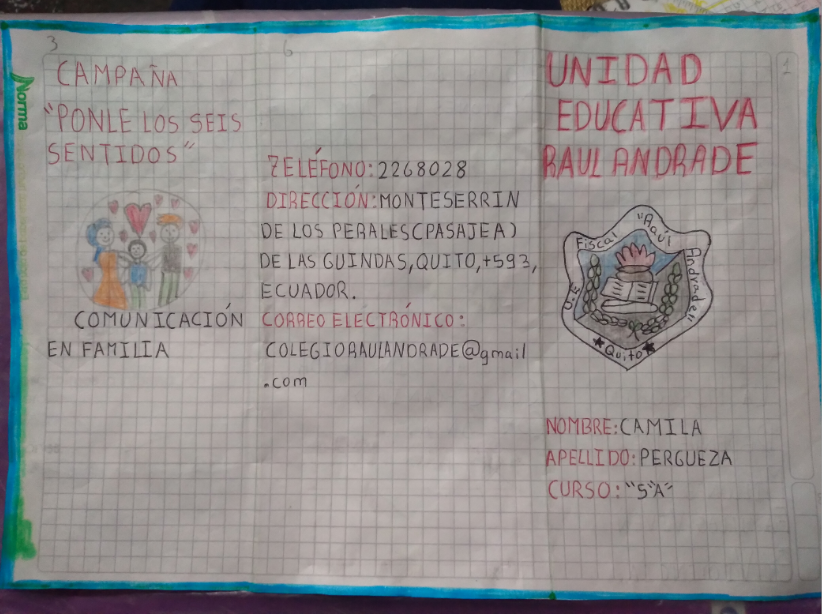 3
CAMPAÑA
"PONLE LOS SEIS
SENTIDOS"
COMUNICACIÓN
EN FAMILIA
6
TELÉFONO: 2268028
DIRECCIÓN: MONTESERRIN
DE LOS PERALES (PASAJE A)
DE LAS GUINDAS, QUITO, +593,
ECUADOR.
CORREO ELECTRÓNICO:
COLEGIORAULANDRADE@gmail
.com
1
UNIDAD
EDUCATIVA
RAUL ANDRADE
U.E Fiscal "Raúl Andrade"
Quito
NOMBRE: CAMILA
APELLIDO: PERGUEZA
CURSO: "5"A"
Norma